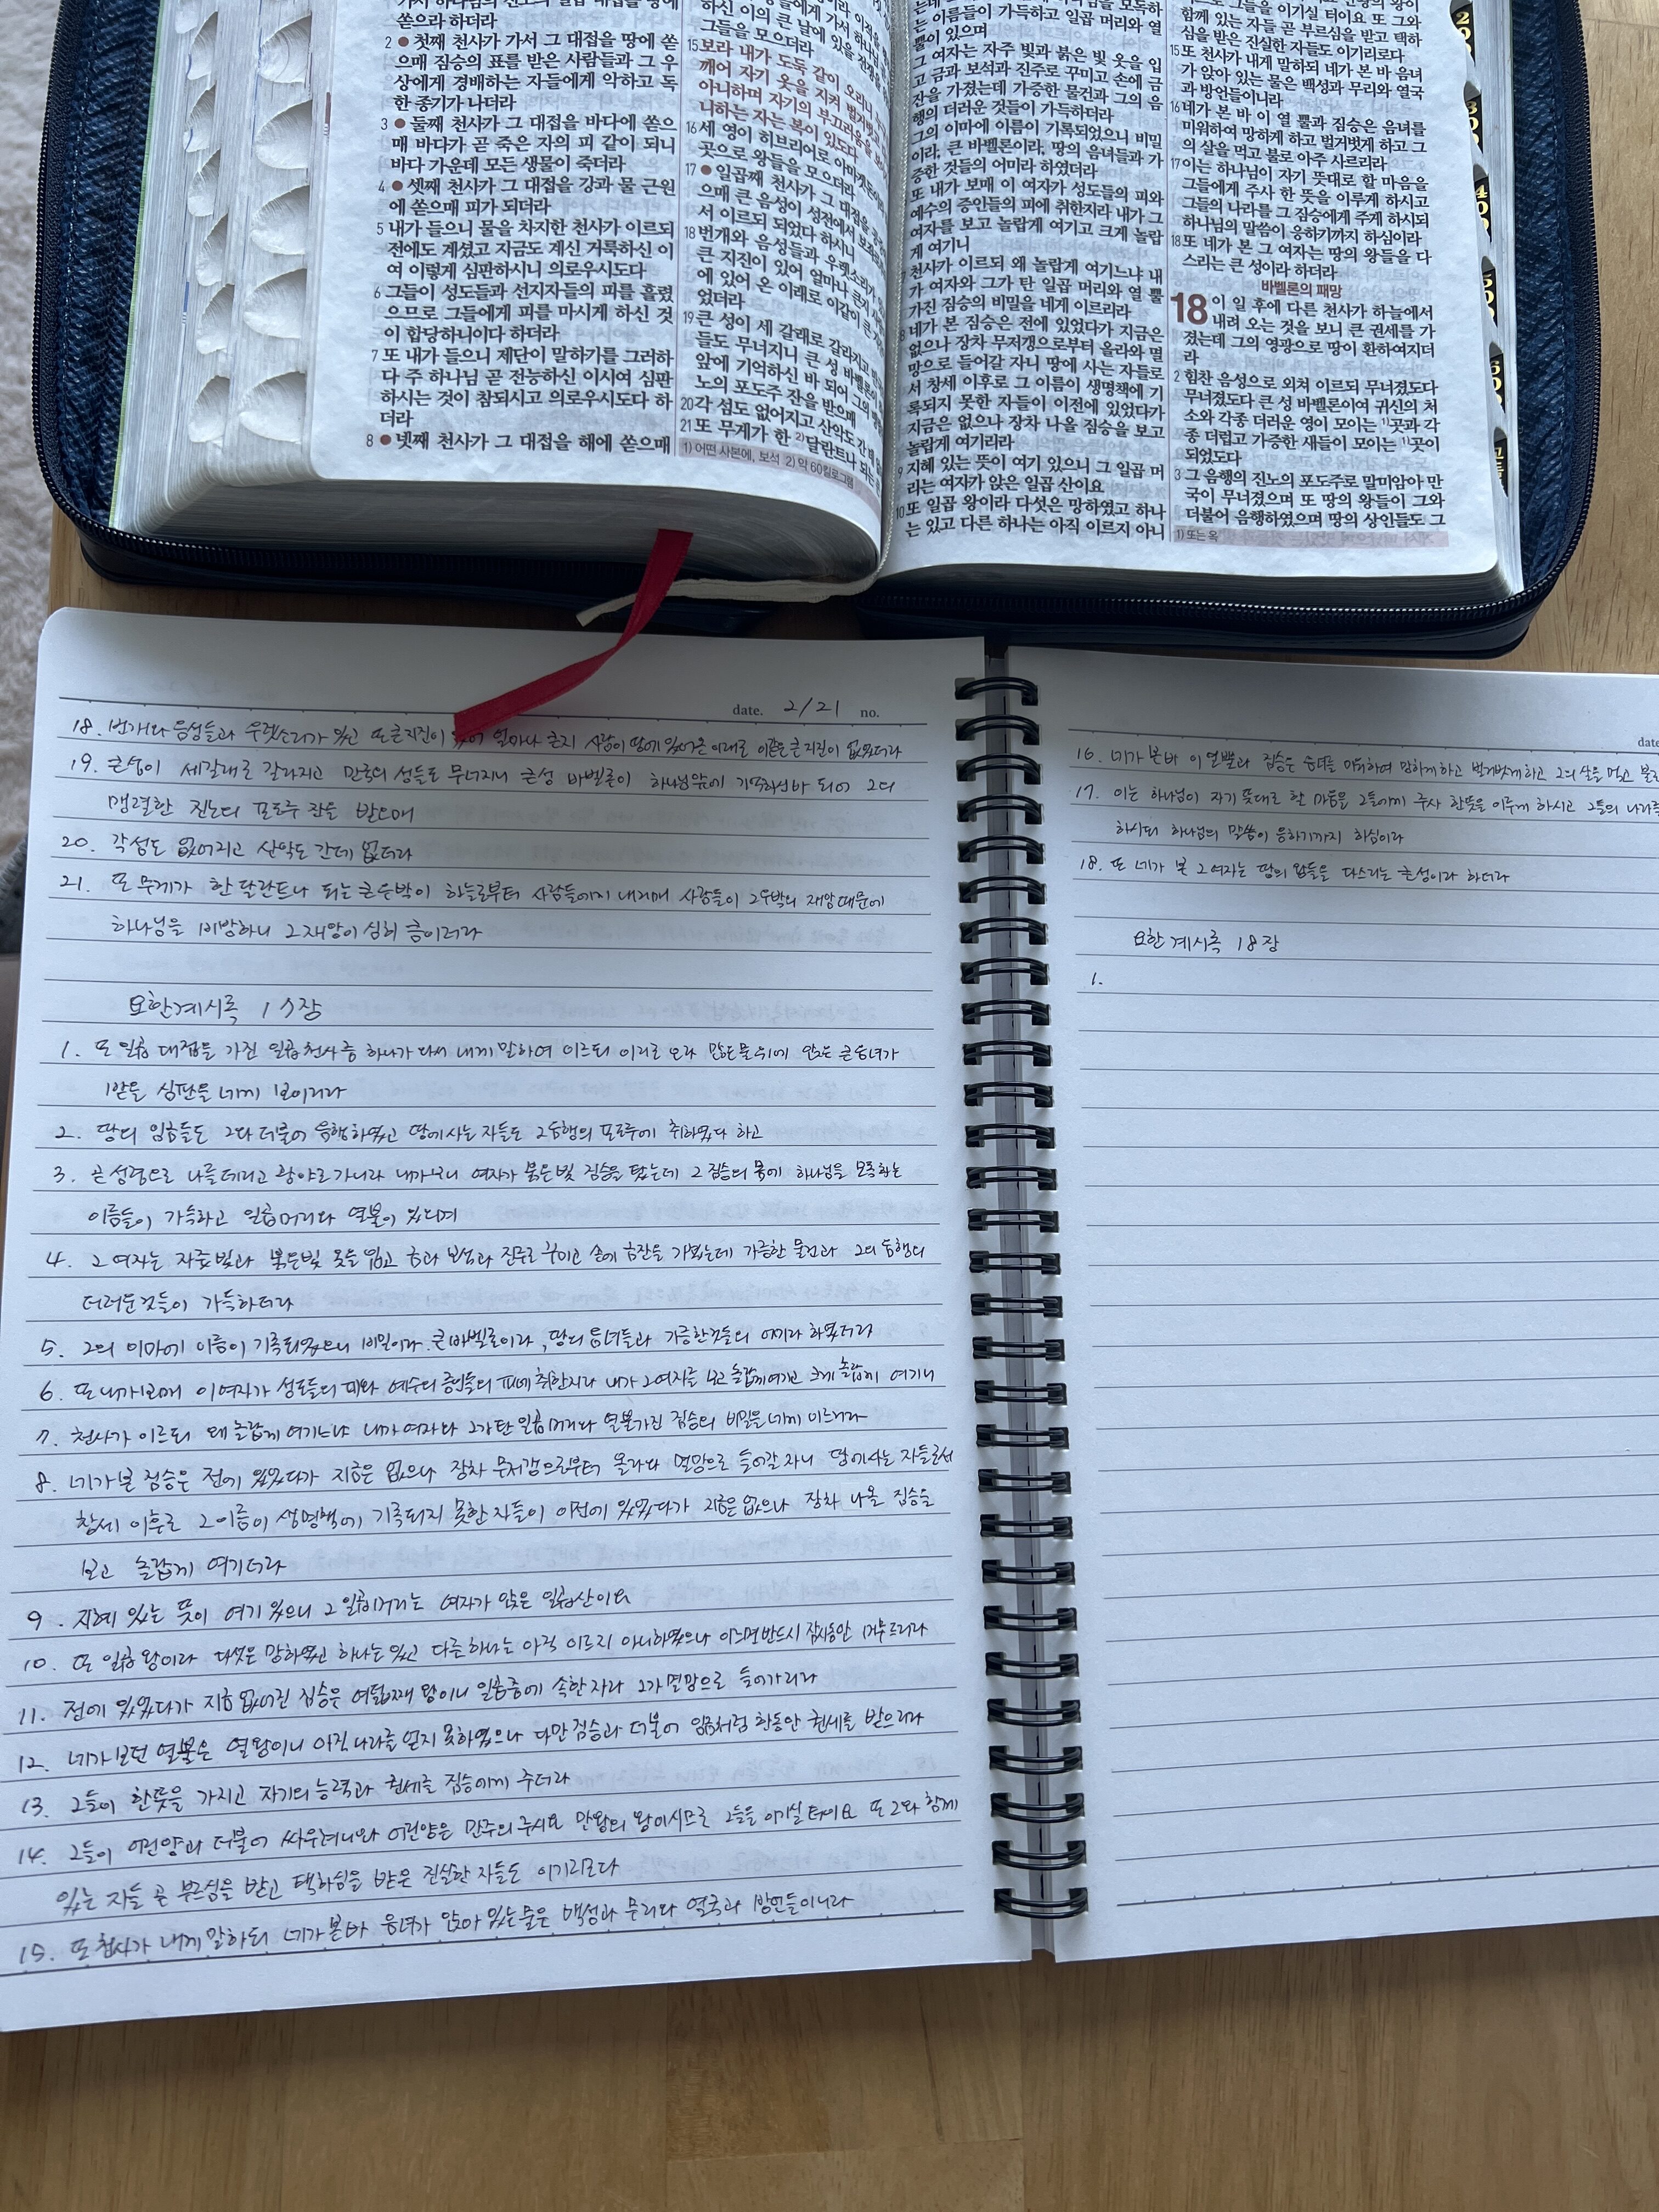 쏟으라 하더라
2 ● 첫째 천사가 가서 그 대접을 땅에 쏟
으매 짐승의 표를 받은 사람들과 그 우
상에게 경배하는 자들에게 악하고 독
한 종기가 나더라
3 ● 둘째 천사가 그 대접을 바다에 쏟으
매 바다가 곧 죽은 자의 피 같이 되니
바다 가운데 모든 생물이 죽더라
4 ● 셋째 천사가 그 대접을 강과 물 근원
에 쏟으매 피가 되더라
5 내가 들으니 물을 차지한 천사가 이르되
전에도 계셨고 지금도 계신 거룩하신 이
여 이렇게 심판하시니 의로우시도다
6 그들이 성도들과 선지자들의 피를 흘렸
으므로 그들에게 피를 마시게 하신 것
이 합당하니이다 하더라
7 또 내가 들으니 제단이 말하기를 그러하
다 주 하나님 곧 전능하신 이시여 심판
하시는 것이 참되시고 의로우시도다 하
더라
8 ● 넷째 천사가 그 대접을 해에 쏟으매
하신 이의 큰 날에 있을
그들을 모으더라
15 보라 내가 도둑 같이 오리니
깨어 자기 옷을 지켜 벌거벗고
아니하며 자기의 부끄러움을
니하는 자는 복이 있도다
16 세 영이 히브리어로 아마겟돈이라
곳으로 왕들을 모으더라
17 ● 일곱째 천사가 그 대접을
으매 큰 음성이 성전에서
서 이르되 되었다 하시니
18 번개와 음성들과 우렛소리가
큰 지진이 있어 얼마나 큰지
에 있어 온 이래로 이같이 큰
었더라
19 큰 성이 세 갈래로 갈라지고
들도 무너지니 큰 성 바벨론이
앞에 기억하신 바 되어 그의
노의 포도주 잔을 받으매
20 각 섬도 없어지고 산악도 간 데
21 또 무게가 한 2)달란트나 되는
1) 어떤 사본에, 보석 2) 약 60킬로그램
는 이름들이 가득하고 일곱 머리와 열
뿔이 있으며
그 여자는 자주 빛과 붉은 빛 옷을 입
고 금과 보석과 진주로 꾸미고 손에 금
잔을 가졌는데 가증한 물건과 그의 음
행의 더러운 것들이 가득하더라
그의 이마에 이름이 기록되었으니 비밀
이라, 큰 바벨론이라, 땅의 음녀들과 가
증한 것들의 어미라 하였더라
또 내가 보매 이 여자가 성도들의 피와
예수의 증인들의 피에 취한지라 내가 그
여자를 보고 놀랍게 여기고 크게 놀랍
게 여기니
7 천사가 이르되 왜 놀랍게 여기느냐 내
가 여자와 그가 탄 일곱 머리와 열 뿔
가진 짐승의 비밀을 네게 이르리라
8 네가 본 짐승은 전에 있었다가 지금은
없으나 장차 무저갱으로부터 올라와 멸
망으로 들어갈 자니 땅에 사는 자들로
서 창세 이후로 그 이름이 생명책에 기
록되지 못한 자들이 이전에 있었다가
지금은 없으나 장차 나올 짐승을 보고
놀랍게 여기리라
9 지혜 있는 뜻이 여기 있으니 그 일곱 머
리는 여자가 앉은 일곱 산이요
10 또 일곱 왕이라 다섯은 망하였고 하나
는 있고 다른 하나는 아직 이르지 아니
그들을 이기실 터이요 또 그와
함께 있는 자들 곧 부르심을 받고 택하
심을 받은 진실한 자들도 이기리로다
15 또 천사가 내게 말하되 네가 본 바 음녀
가 앉아 있는 물은 백성과 무리와 열국
과 방언들이니라
16 네가 본 바 이 열 뿔과 짐승은 음녀를
미워하여 망하게 하고 벌거벗게 하고 그
의 살을 먹고 불로 아주 사르리라
17 이는 하나님이 자기 뜻대로 할 마음을
그들에게 주사 한 뜻을 이루게 하시고
그들의 나라를 그 짐승에게 주게 하시되
하나님의 말씀이 응하기까지 하심이라
18 또 네가 본 그 여자는 땅의 왕들을 다
스리는 큰 성이라 하더라
바벨론의 패망
18 이 일 후에 다른 천사가 하늘에서
내려 오는 것을 보니 큰 권세를 가
졌는데 그의 영광으로 땅이 환하여지더
라
2 힘찬 음성으로 외쳐 이르되 무너졌도다
무너졌도다 큰 성 바벨론이여 귀신의 처
소와 각종 더러운 영이 모이는 1)곳과 각
종 더럽고 가증한 새들이 모이는 1)곳이
되었도다
3 그 음행의 진노의 포도주로 말미암아 만
국이 무너졌으며 또 땅의 왕들이 그와
더불어 음행하였으며 땅의 상인들도 그
1) 또는 옥
date. 2/21 no.
18. 번개와 음성들과 우렛소리가 있고 또 큰지진이 있어 얼마나 큰지 사람이 땅에 있어온 이래로 이같은 큰 지진이 없었더라
19. 큰성이 세갈래로 갈라지고 만국의 성들도 무너지니 큰성 바벨론이 하나님앞에 기억하신바 되어 그의
맹렬한 진노의 포도주 잔을 받으매
20. 각섬도 없어지고 산악도 간데 없더라
21. 또 무게가 한 달란트나 되는 큰 우박이 하늘로부터 사람들에게 내리매 사람들이 그 우박의 재앙때문에
하나님을 비방하니 그 재앙이 심히 큼이러라
요한계시록 17장
1. 또 일곱 대접을 가진 일곱천사중 하나가 와서 내게 말하여 이르되 이리로 오라 많은물위에 앉은 큰음녀가
받을 심판을 네게 보이리라
2. 땅의 임금들도 그와 더불어 음행하였고 땅에사는 자들도 그음행의 포도주에 취하였다 하고
3. 곧 성령으로 나를데리고 광야로 가니라 내가보니 여자가 붉은빛 짐승을 탔는데 그 짐승의 몸에 하나님을 모독하는
이름들이 가득하고 일곱머리와 열뿔이 있으며
4. 그 여자는 자줏빛과 붉은빛 옷을 입고 금과 보석과 진주로 꾸미고 손에 금잔을 가졌는데 가증한 물건과 그의 음행의
더러운것들이 가득하더라
5. 그의 이마에 이름이 기록되었으니 비밀이라. 큰바벨론이라, 땅의 음녀들과 가증한것들의 어미라 하였더라
6. 또 내가보매 이여자가 성도들의 피와 예수의 증인들의 피에 취한지라 내가 그여자를 보고 놀랍게여기고 크게 놀랍게 여기니
7. 천사가 이르되 왜 놀랍게 여기느냐 내가 여자와 그가탄 일곱머리와 열뿔가진 짐승의 비밀을 네게 이르리라
8. 네가 본 짐승은 전에 있었다가 지금은 없으나 장차 무저갱으로부터 올라와 멸망으로 들어갈 자니 땅에사는 자들로서
창세 이후로 그 이름이 생명책에 기록되지 못한 자들이 이전에 있었다가 지금은 없으나 장차 나올 짐승을
보고 놀랍게 여기더라
9. 지혜 있는 뜻이 여기 있으니 그 일곱머리는 여자가 앉은 일곱산이요
10. 또 일곱 왕이라 다섯은 망하였고 하나는 있고 다른하나는 아직 이르지 아니하였으나 이르면반드시 잠시동안 머무르리라
11. 전에 있었다가 지금 없어진 짐승은 여덟째 왕이니 일곱중에 속한자라 그가 멸망으로 들어가리라
12. 네가 보던 열뿔은 열왕이니 아직 나라를 얻지 못하였으나 다만 짐승과 더불어 임금처럼 한동안 권세를 받으리라
13. 그들이 한뜻을 가지고 자기의 능력과 권세를 짐승에게 주더라
14. 그들이 어린양과 더불어 싸우려니와 어린양은 만주의 주시요 만왕의 왕이시므로 그들을 이기실 터이요 또 그와 함께
있는 자들 곧 부르심을 받고 택하심을 받은 진실한 자들도 이기리로다
15. 또 천사가 내게 말하되 네가 본바 음녀가 앉아 있는물은 백성과 무리와 열국과 방언들이니라
date
16. 네가 본바 이 열뿔과 짐승은 음녀를 미워하여 망하게 하고 벌거벗게 하고 그의 살을 먹고
17. 이는 하나님이 자기 뜻대로 할 마음을 그들에게 주사 한뜻을 이루게 하시고 그들의 나라를
하시되 하나님의 말씀이 응하기까지 하심이라
18. 또 네가 본 그 여자는 땅의 왕들을 다스리는 큰성이라 하더라
요한계시록 18장
1.